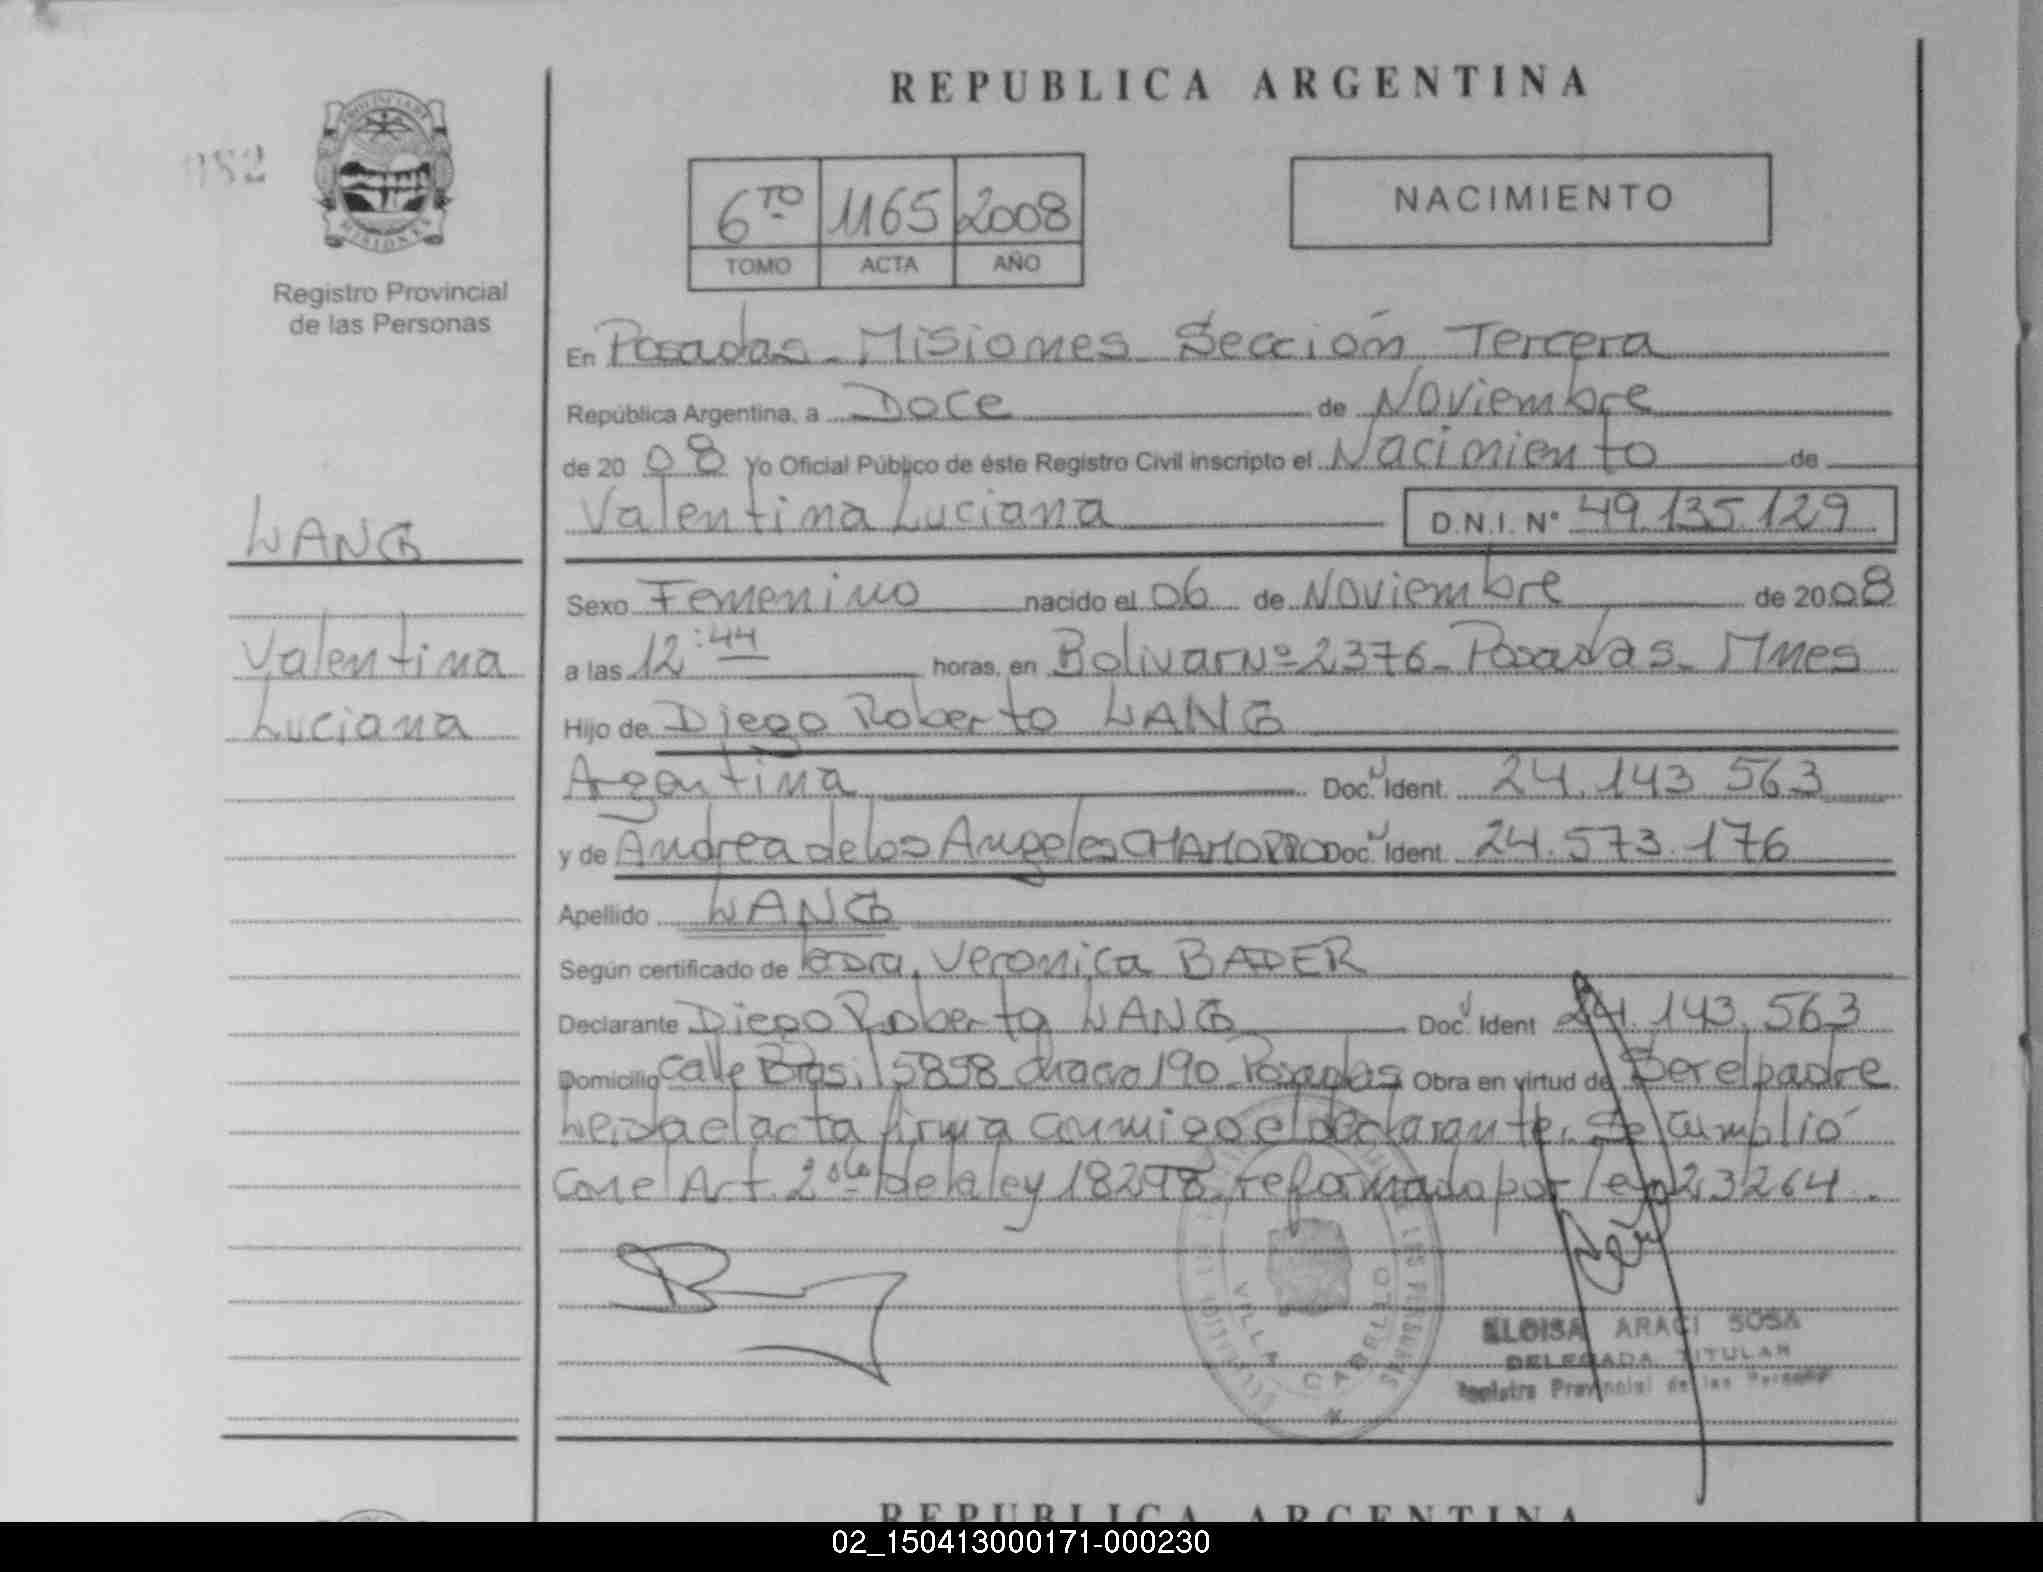 REPUBLICA ARGENTINA
PROVINCIA DE
MISIONES
Registro Provincial
de las Personas
6TO 1165 2008
TOMO ACTA AÑO
NACIMIENTO
En Posadas - Misiones Sección Tercera
República Argentina, a Doce de Noviembre
de 20 08 Yo Oficial Público de éste Registro Civil inscripto el Nacimiento de
Valentina Luciana D.N.I. Nº 49.135.129
WANG
Valentina
Luciana
Sexo Femenino nacido el 06 de Noviembre de 2008
a las 12:44 horas, en Bolivar Nº 2376 - Posadas - Mnes
Hijo de Diego Roberto WANG
Argentina Doc. Ident. 24.143.563
y de Andrea de los Angeles CHAMORRO Doc. Ident. 24.573.176
Apellido WANG
Según certificado de Dra. Veronica BADER
Declarante Diego Roberto WANG Doc. Ident 24.143.563
Domicilio Calle Brasil 5898 chacra 190 Posadas Obra en virtud de Ser el padre
Leida el acta firma conmigo el declarante. Se cumplió
con el Art. 2do de la ley 18298 reformado por ley 23264.
VILLA CABELLO
ELOISA ARACI SOSA
DELEGADA TITULAR
Registro Provincial de las Personas
REPUBLICA ARGENTINA
02_150413000171-000230